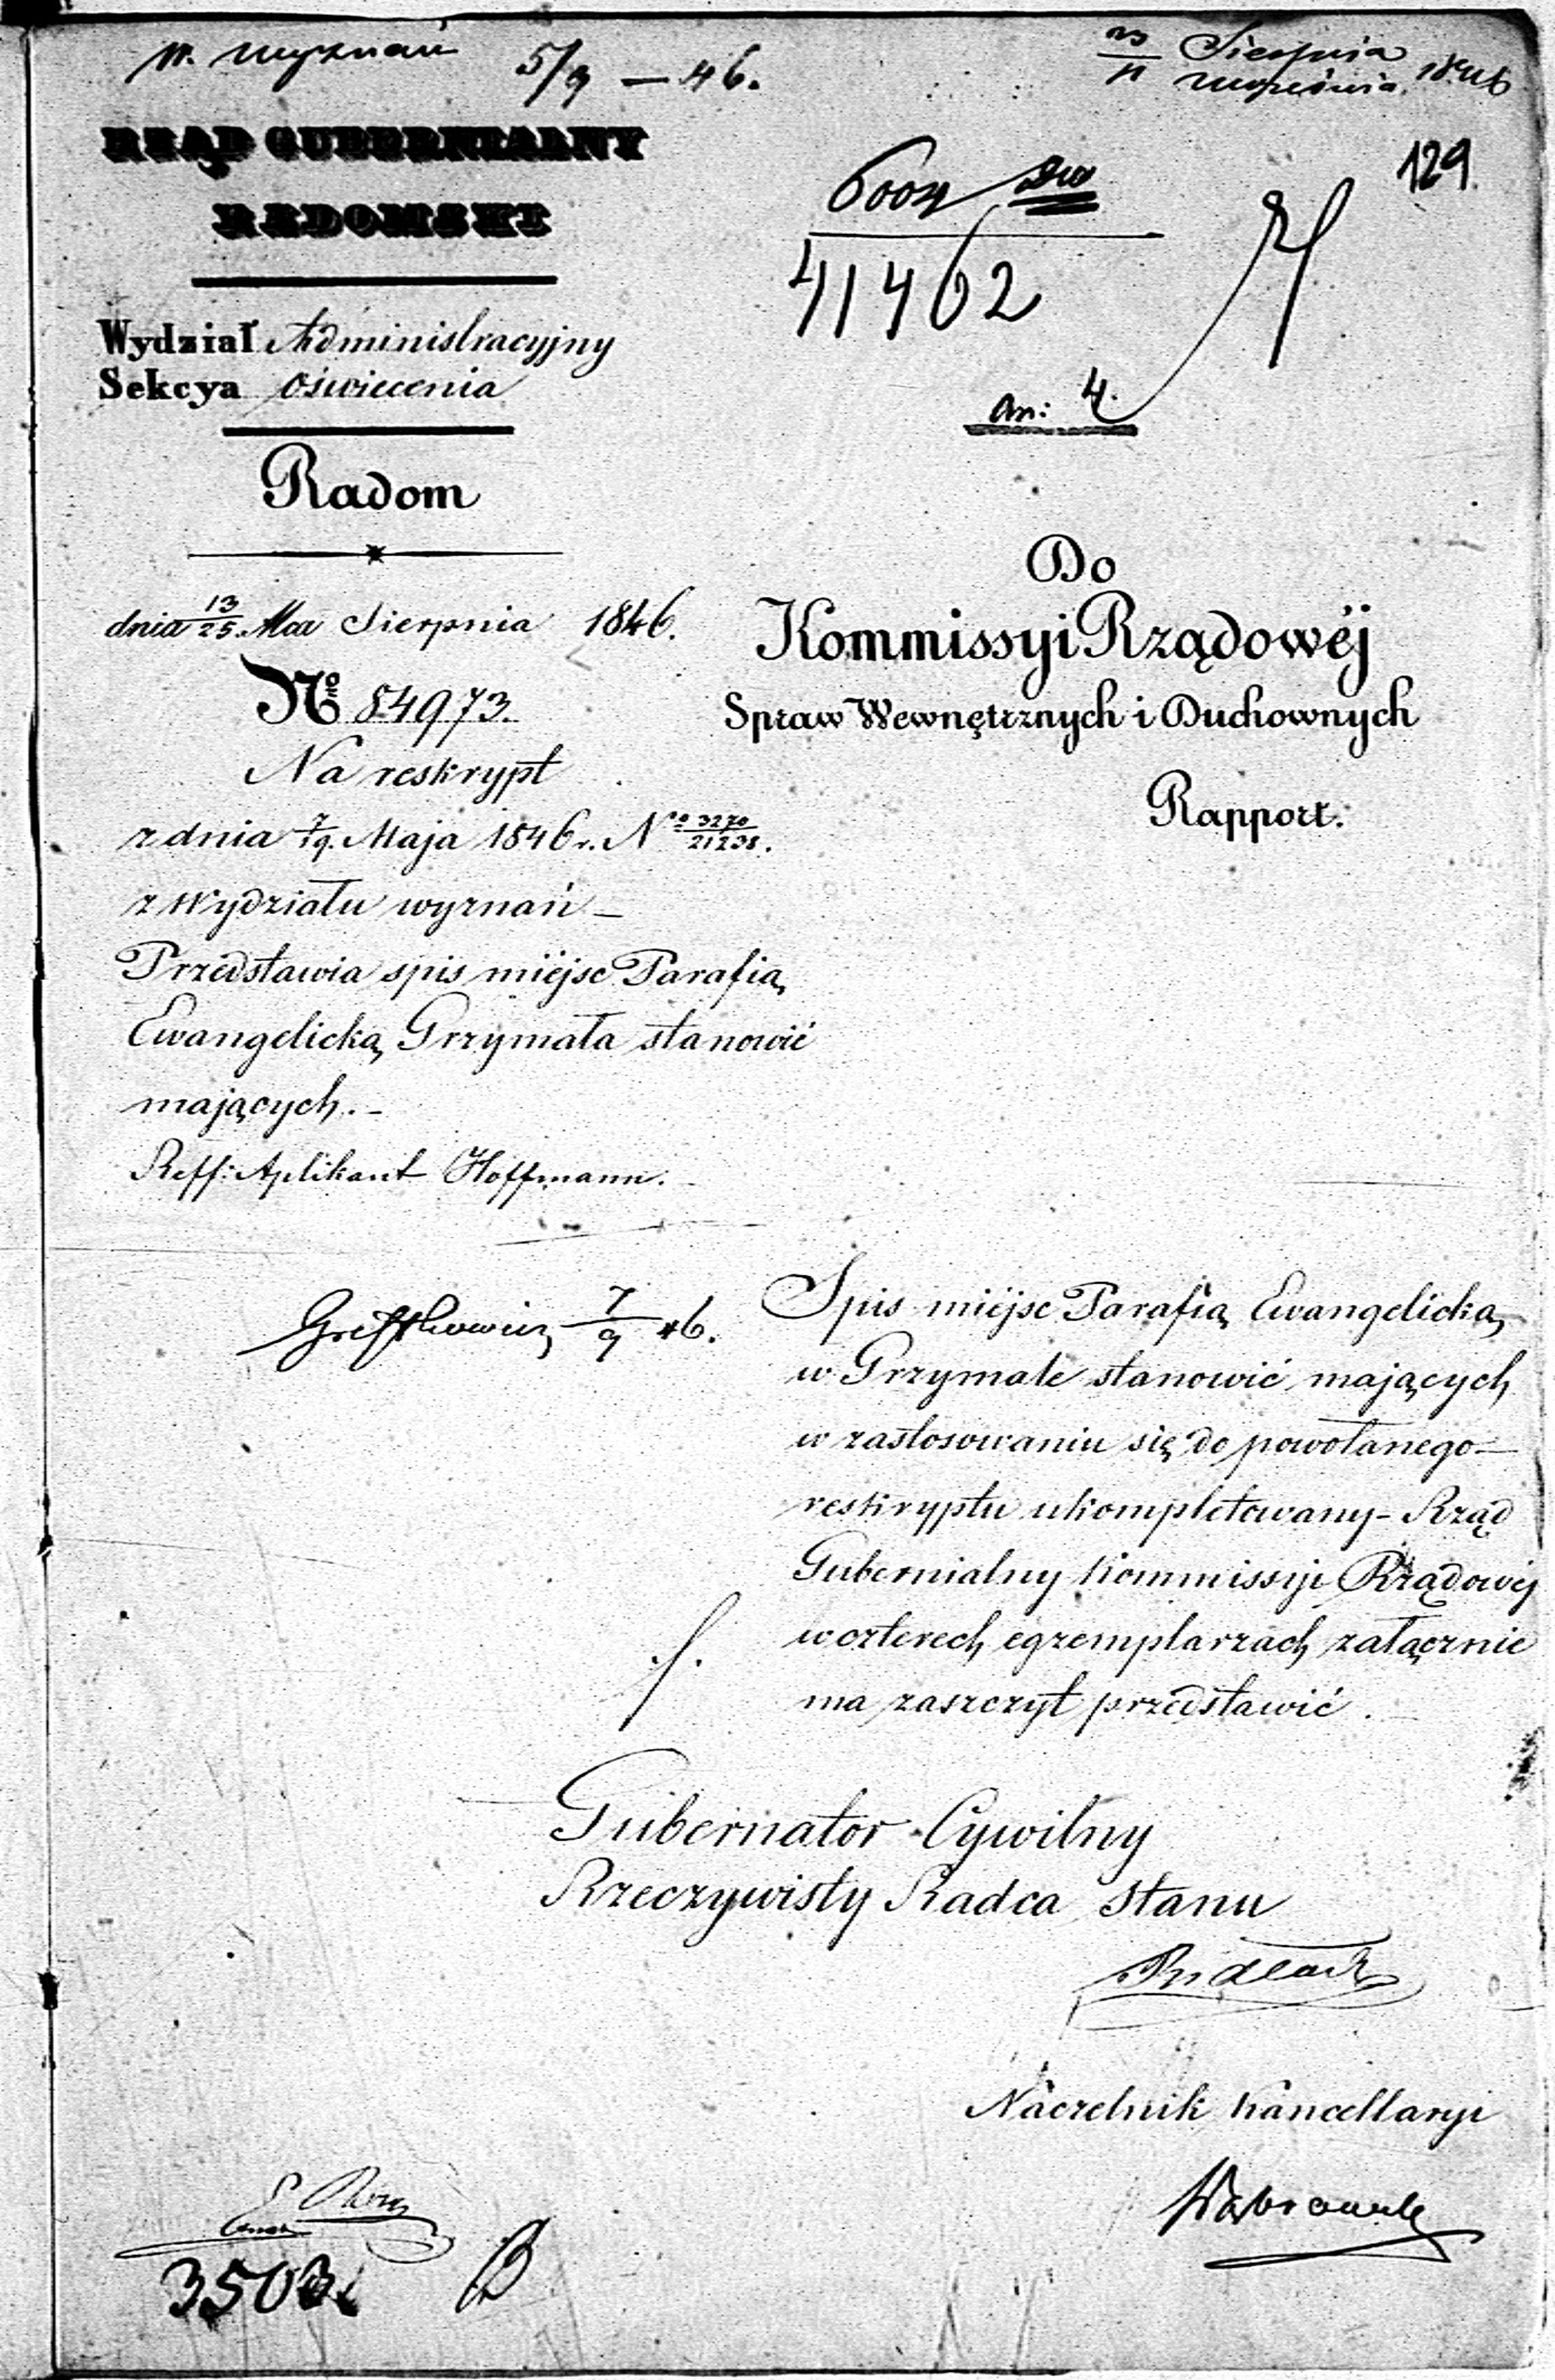 W. Wyznań 5/9 – 46.
Sierpnia
Września 1846
129.
41462
an: 4.
RZĄD GUBERNIALNY
RADOMSKI
Wydział Administracyjny
Sekcya Oświecenia
Radom
dnia 13/25 Mca Sierpnia 1846.
No 54973.
Na reskrypt
z dnia 7/19. Maja 1846 r. No 3270/21238.
z Wydziału wyznań –
Przedstawia spis miejsc Parafią
Ewangelicką Przymała stanowić
mających. –
Reff: Aplikant Hoffmann.
Do
Kommissyi Rządowéj
Spraw Wewnętrznych i Duchownych
Rapport.
7/9 46.
Spis miejsc Parafią Ewangelicką
w Przymale stanowić mających
w zastosowaniu się do powołanego –
reskryptu ukompletowany – Rząd
Gubernialny Kommissyi Rządowéj
w czterech egzemplarzach załącznie
ma zaszczyt przedstawić.
Gubernator Cywilny
Rzeczywisty Radca Stanu
Naczelnik Kancellaryi